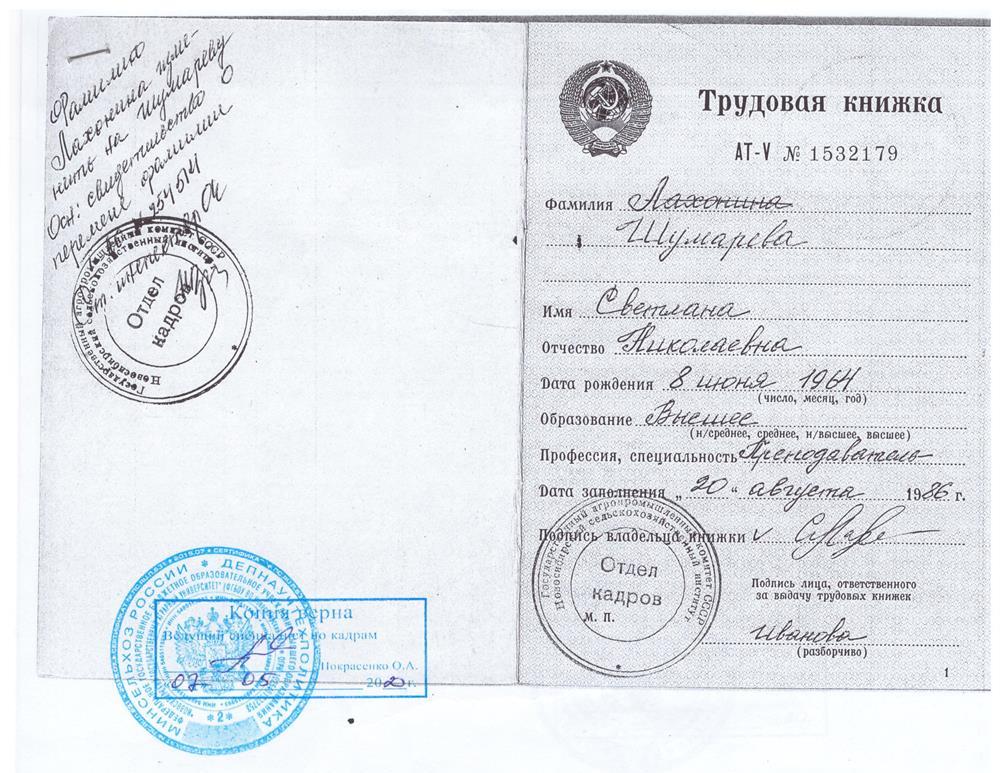 Фамилия
Лахонина изме-
нить на Шумареву
Осн: свидетельство о
перемене фамилии
254514
Государственный агропромышленный комитет СССР
Новосибирский сельскохозяйственный институт
Отдел
кадров
МИНСЕЛЬХОЗ РОССИИ * ДЕПНАУЧТЕХПОЛИТИКА
* 2 *
Копия верна
Ведущий специалист по кадрам
Покрасенко О.А.
07. 05 2020 г.
Трудовая книжка
АТ-V № 1532179
Фамилия Лахонина
Шумарева
Имя Светлана
Отчество Николаевна
Дата рождения 8 июня 1964
(число, месяц, год)
Образование Высшее
(н/среднее, среднее, н/высшее, высшее)
Профессия, специальность Преподаватель
Дата заполнения „ 20 “ августа 1986 г.
Подпись владельца книжки
Государственный агропромышленный комитет СССР
Новосибирский сельскохозяйственный институт
Отдел
кадров
М. П.
Подпись лица, ответственного
за выдачу трудовых книжек
Иванова
(разборчиво)
1